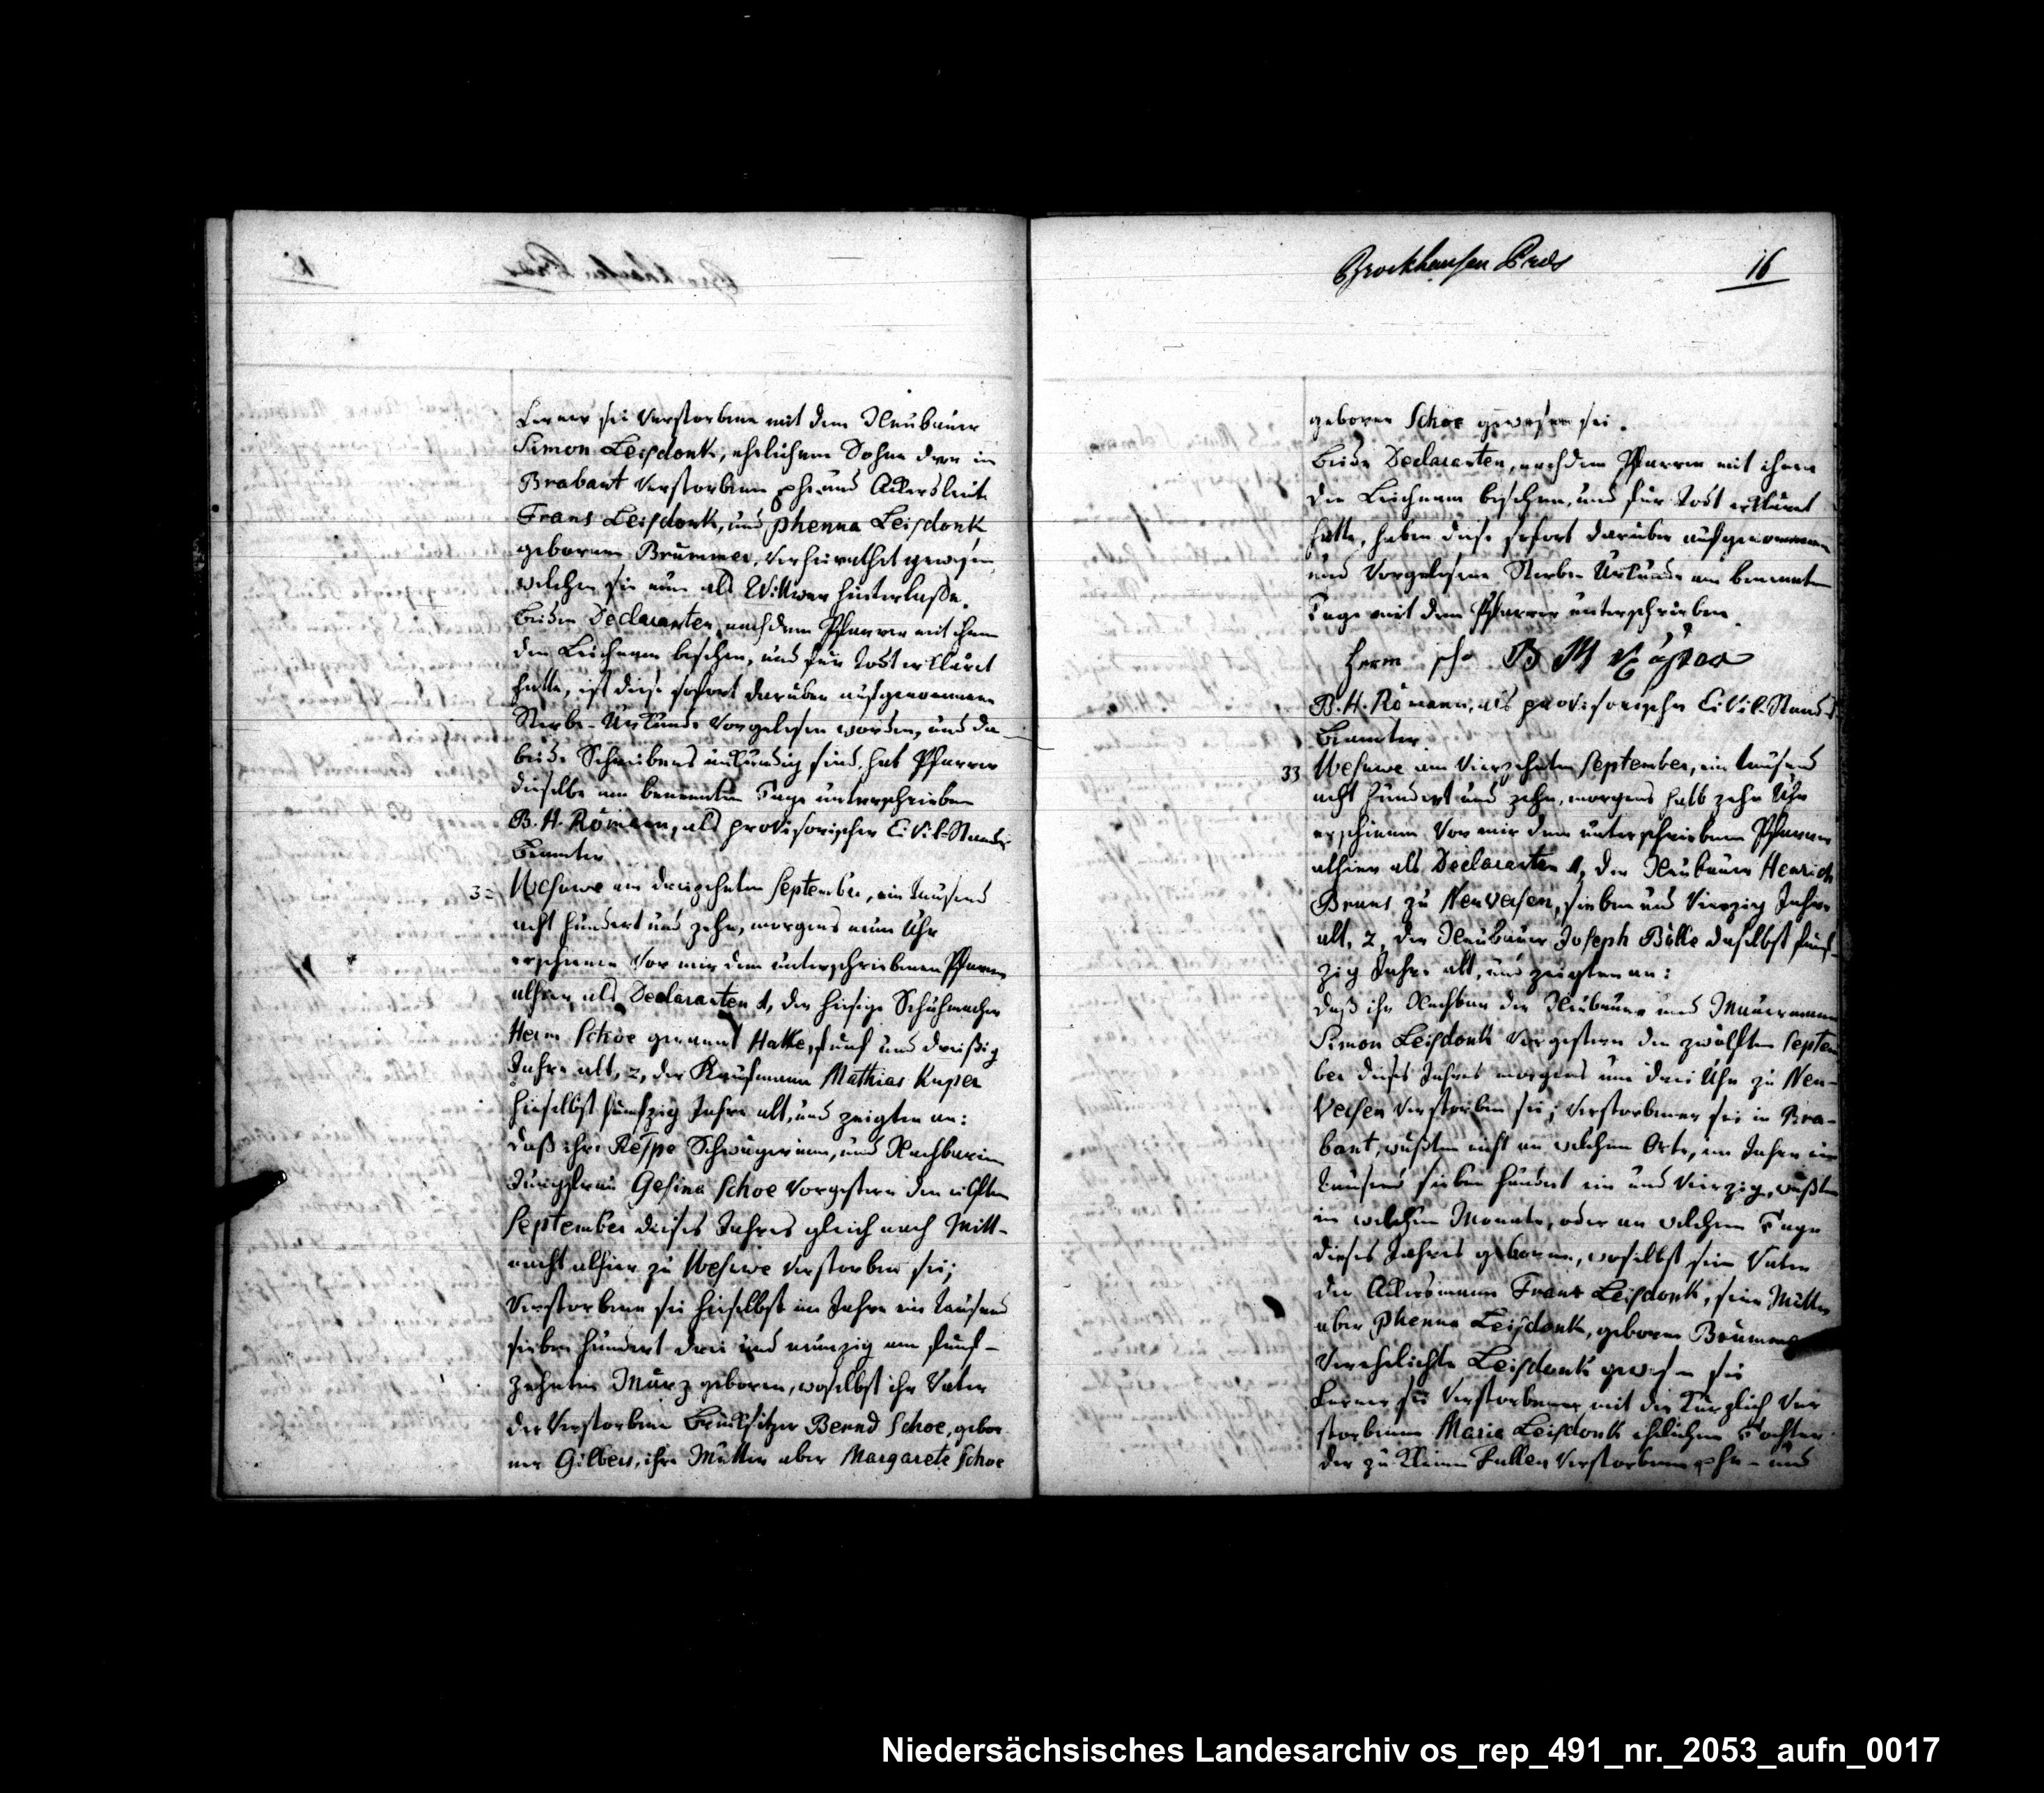 Ferner sei Verstorbene mit dem Neubauer
Simon Leisdonk, ehelichem Sohne der in
Brabant Verstorbenen Ehe und Ackersleute
Frans Leisdonk, und Phenna Leisdonk
gebornen Brummer, Verheirathet gewesen,
welchen sie nun als Wittwer hinterlaße.
Beiden Declaranten, nachdem Pfarrer mit ihnen
den Leichnam besehen, und für Todt erklärt
hatte, ist diese sofort darüber aufgenommene
Sterbe-Urkunde Vorgelesen worden, und da
beide Schreibens unkundig sind, hat Pfarrer
dieselbe am benannten Tage unterschrieben
B. H. Römann, als provisorischer Civil-Stands
Beamter
32 Wesuwe am dreizehnten September, ein Tausend
acht hundert und zehn, morgens neun Uhr
erschienen Vor mir dem unterschriebenen Pfarrer
alhier als Declaranten 1, der hiesige Schuhmacher
Herm Schoe genannt Hatke, fünf und dreißig
Jahre alt, 2, der Kaufmann Mathias Kuper
hieselbst fünfzig Jahre alt, und zeigten an:
daß ihre Respe Schwägerinn, und Nachbarin
Jungfrau Gesina Schoe Vorgestern den eilften
September dieses Jahres gleich nach Mitt-
nacht alhier zu Wesuwe Verstorben sei;
Verstorbene sei hieselbst im Jahre ein Tausend
sieben hundert drei und neunzig am fünf-
zehnten März geboren, woselbst ihr Vater
der Verstorbene Brinksitzer Bernd Schoe, gebor
ner Gilbers, ihre Mutter aber Margarete Schoe
Brockhausen Präs
16
geborne Schoe gewesen sei.
Beide Declaranten, nachdem Pfarrer mit ihnen
den Leichnam besehen, und für Todt erklärt
hatte, haben diese sofort darüber aufgenommene
und Vorgelesene Sterbe Urkunde am benannten
Tage mit dem Pfarrer unterschrieben.
Herm Scho B M Küper
B. H. Römann, als provisorischer Civil-Stands
Beamter.
33 Wesuwe am Vierzehnten September, ein Tausend
acht hundert und zehn, morgens halb zehn Uhr
erschienen Vor mir dem unterschriebenen Pfarrer
alhier als Declaranten 1, der Neubauer Henrich
Bruns zu Neuversen, sieben und Vierzig Jahre
alt, 2, der Neubauer Joseph Bölle daselbst fünf-
zig Jahre alt, und zeigten an:
daß ihr Nachbar der Neubauer und Mauermann
Simon Leisdonk Vorgestern den zwölften Septem
ber dieses Jahres morgens um drei Uhr zu Neu-
Versen Verstorben sei; Verstorbener sei in Bra-
bant, wußten nicht an welchem Orte, im Jahre ein
Tausend sieben hundert ein und Vierzig, wußten
in welchem Monate, oder an welchem Tage
dieses Jahres geboren, woselbst sein Vater
der Ackersmann Frans Leisdonk, seine Mutter
aber Phenna Leisdonk, geborne Brummer
Verehelichte Leisdonk gewesen sei
Ferner sei Verstorbener mit der kürzlich Ver
storbenen Maria Leisdonk ehelichen Tochter
der zu Kleinen Fullen Verstorbenen Ehe- und
Niedersächsisches Landesarchiv os_rep_491_nr._2053_aufn_0017